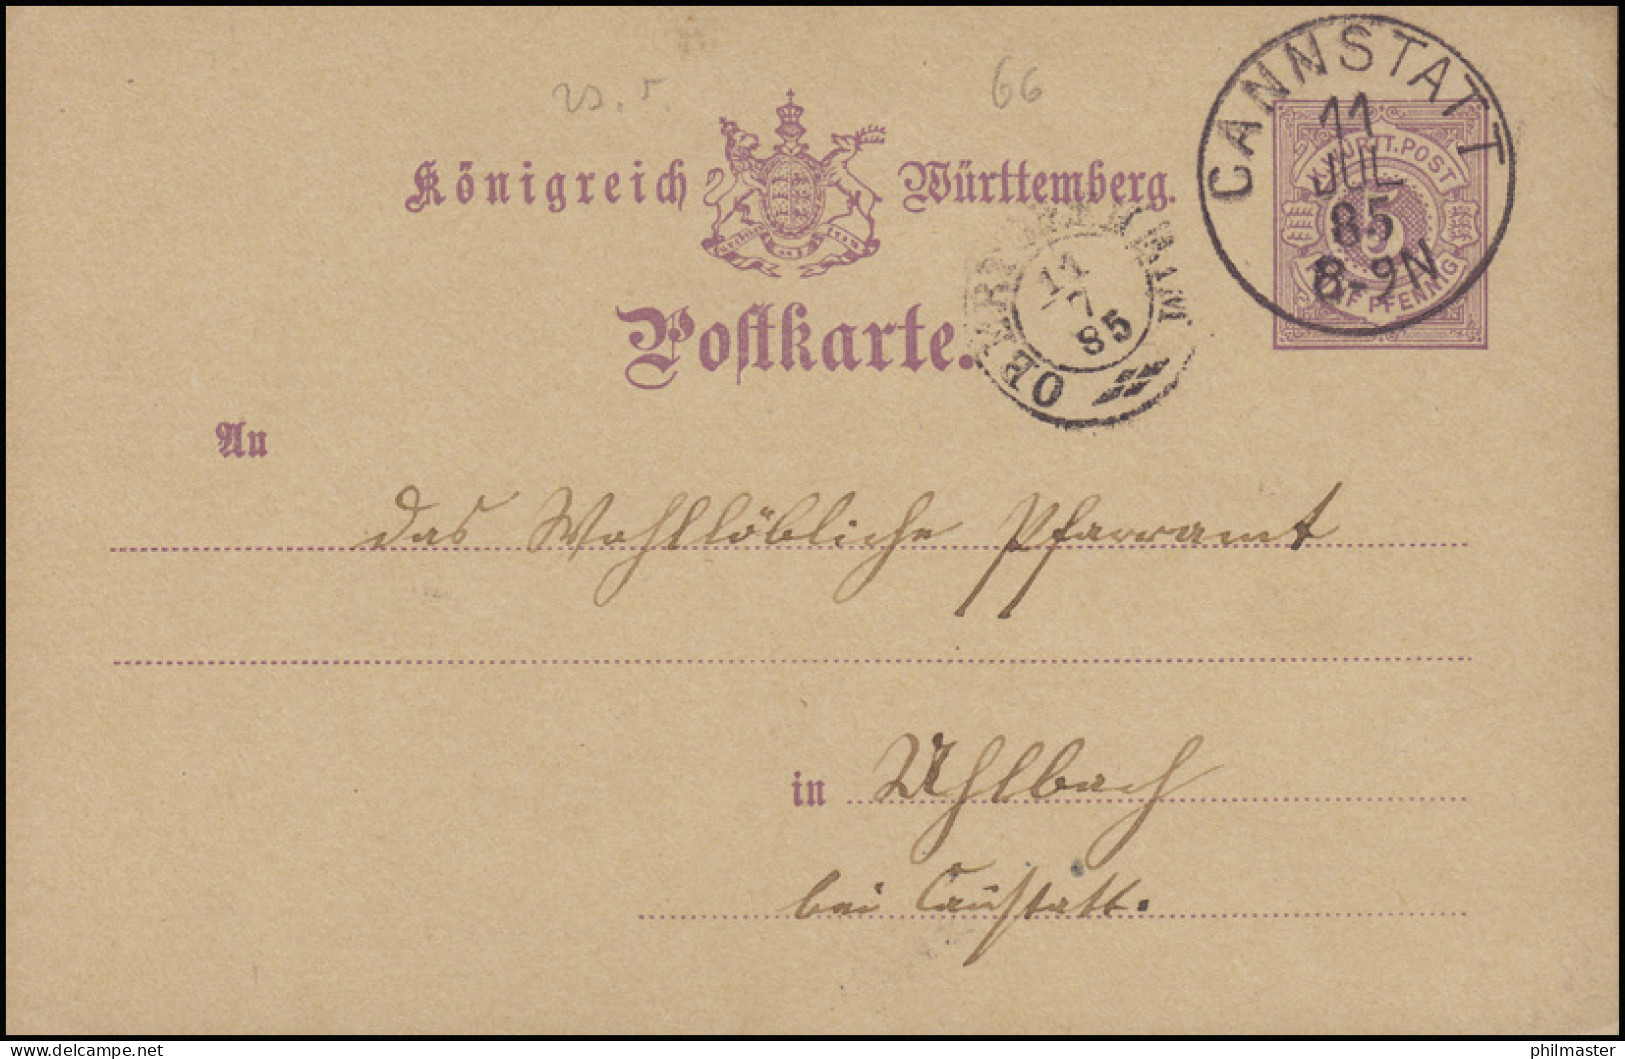 66
CANNSTATT
11
JUL
85
8-9N
K.WÜRTT.POST
5
FÜNF PFENNIG
Königreich Württemberg.
11
7
85
Postkarte.
An
das Wohllöbliche Pfarramt
in Uhlbach
bei Cannstatt.
delcampe.net
philmaster